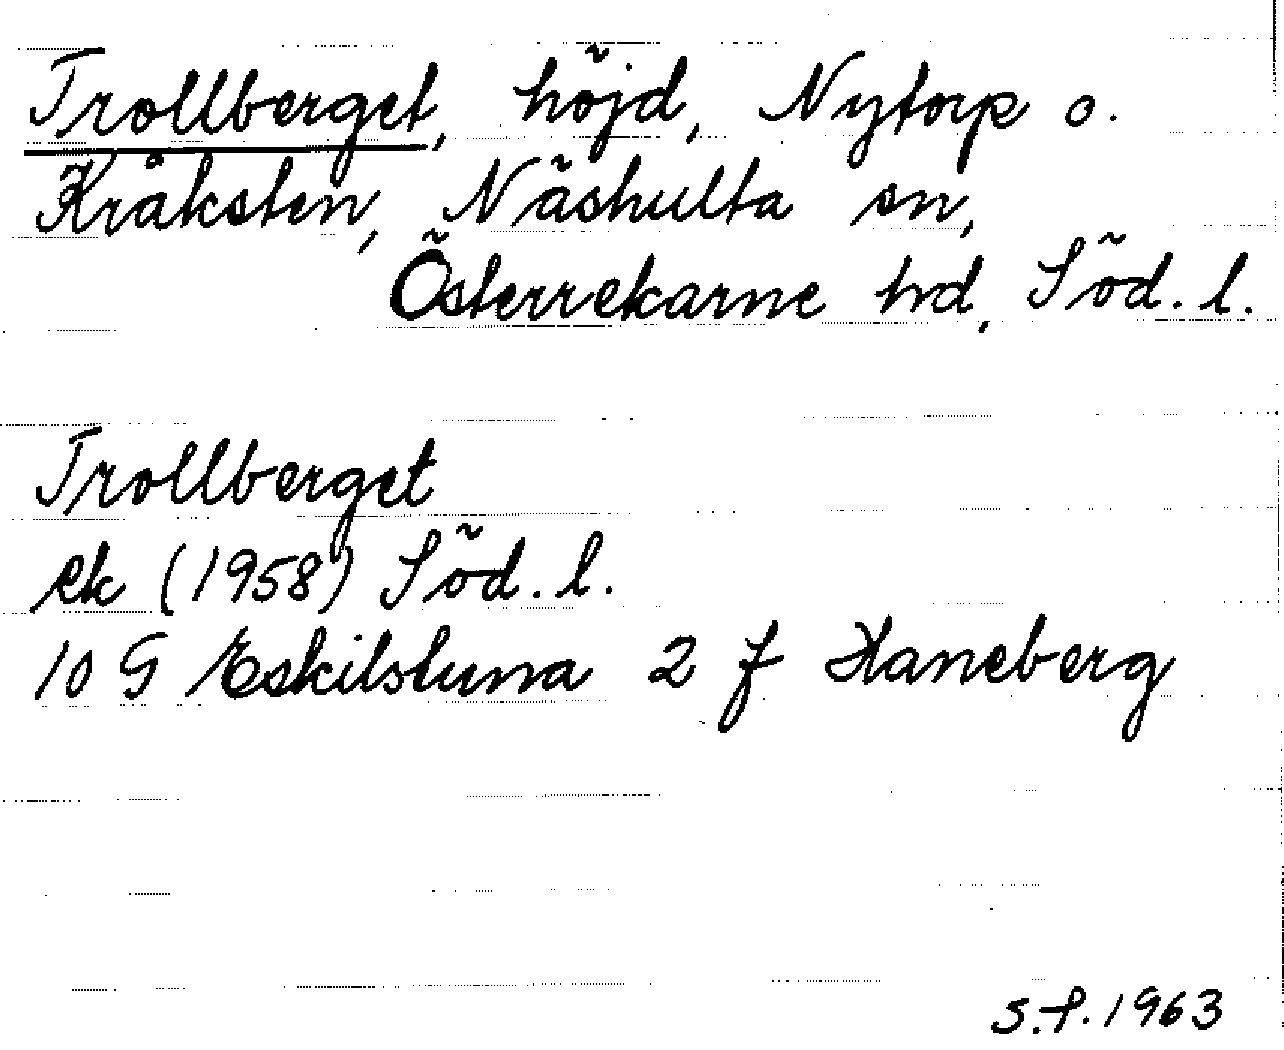 Trollberget, höjd, Nytorp o.
Kråksten, Näshulta sn,
Österrekarne hd, Söd. l.
Trollberget
ek (1958) Söd. l.
10 G Eskilstuna 2 f Haneberg
S.f. 1963